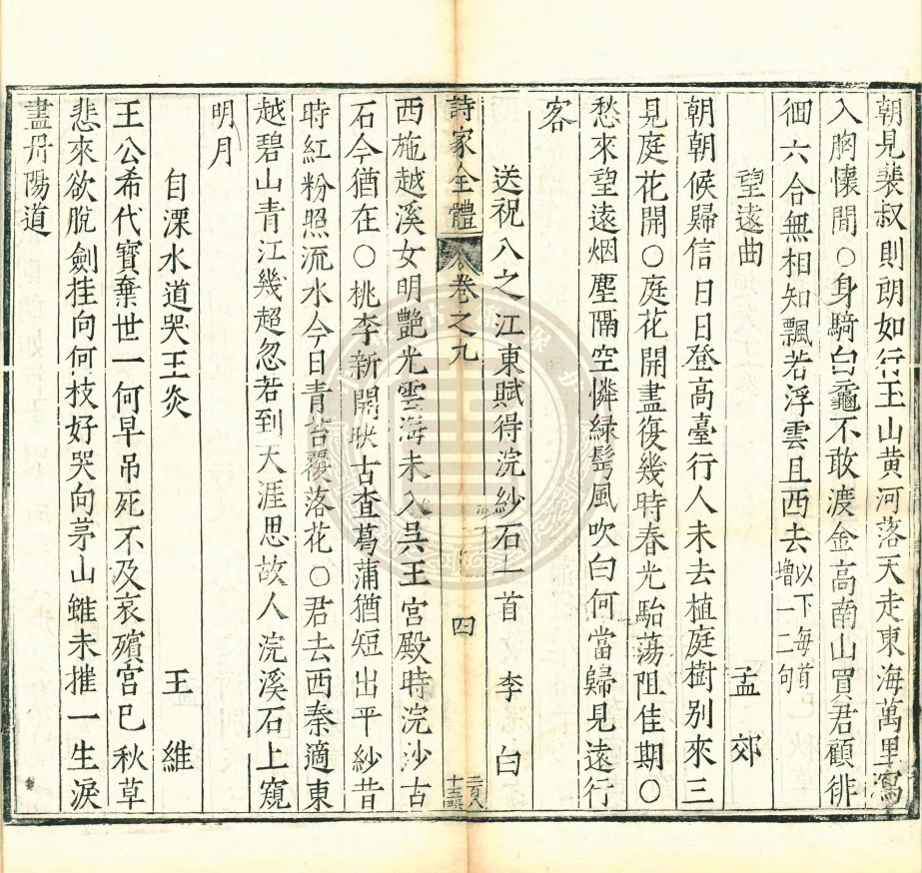 朝見裴叔則朗如行玉山黃河落天走東海萬里瀉
入胸懷間○身騎白黿不敢渡金高南山買君顧徘
徊六合無相知飄若浮雲且西去以下每首增一二句
望遠曲 孟郊
朝朝候歸信日日登高臺行人未去植庭樹別來三
見庭花開○庭花開盡復幾時春光駘蕩阻佳期○
愁來望遠烟塵隔空憐綠鬂風吹白何當歸見遠行
客
送祝八之江東賦得浣紗石一首 李白
詩家全體 卷之九 四
西施越溪女明艷光雲海未入吳王宮殿時浣沙古
石今猶在○桃李新開映古查菖蒲猶短出平紗昔
時紅粉照流水今日青苔覆落花○君去西秦適東
越碧山青江幾超忽若到天涯思故人浣溪石上窺
明月
自溧水道哭王炎 王維
王公希代寶棄世一何早吊死不及哀殯宮已秋草
悲來欲脫劍挂向何枝好哭向茅山雖未摧一生淚
盡丹陽道